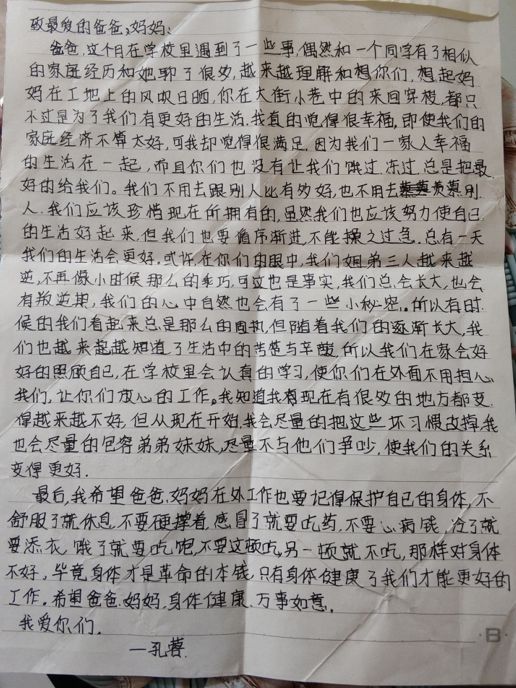 致最爱的爸爸、妈妈:
爸爸,这个月在学校里遇到了一些事,偶然和一个同学有了相似
的家庭经历和她聊了很多,越来越理解和想你们,想起妈
妈在工地上的风吹日晒,你在大街小巷中的来回穿梭,都只
不过是为了我们有更好的生活.我真的觉得很幸福,即使我们的
家庭经济不算太好,可我却觉得很满足,因为我们一家人幸福
的生活在一起,而且你们也没有让我们饿过、冻过,总是把最
好的给我们。我们不用去跟别人比有多好,也不用去羡慕别
人.我们应该珍惜现在所拥有的,虽然我们也应该努力使自己
的生活好起来,但我们也要循序渐进,不能操之过急.总有一天
我们的生活会更好.或许在你们的眼中,我们姐弟三人越来越
逆,不再像小时候那么的乖巧,可这也是事实,我们总会长大,也会
有叛逆期,我们的心中自然也会有了一些小秘密.所以有时
候的我们看起来总是那么的固执,但随着我们的逐渐长大,我
们也越来越知道了生活中的苦楚与辛酸,所以我们在家会好
好的照顾自己,在学校里会认真的学习,使你们在外面不用担心
我们,让你们放心的工作。我知道我现在有很多的地方都变
得越来越不好,但从现在开始,我会尽量的把这些坏习惯改掉,我
也会尽量的包容弟弟妹妹,尽量不与他们争吵,使我们的关系
变得更好.
最后,我希望爸爸、妈妈在外工作也要记得保护自己的身体,不
舒服了就休息,不要硬撑着,感冒了就要吃药,不要心疼钱,冷了就
要添衣,饿了就要吃饱,不要这顿吃,另一顿就不吃,那样对身体
不好,毕竟身体才是革命的本钱,只有身体健康了我们才能更好的
工作。希望爸爸、妈妈,身体健康,万事如意.
我爱你们.
一孔蓉
B